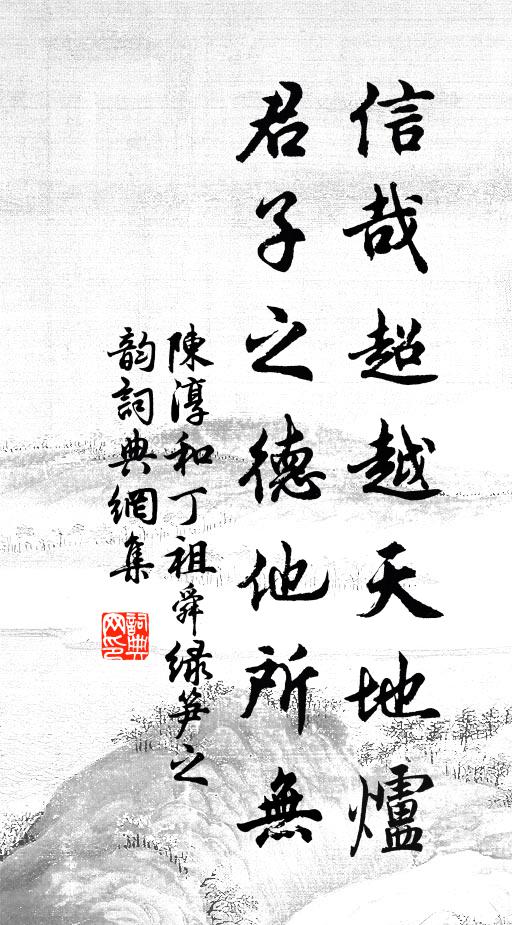 信哉超越天地爐
君子之德他所無
陳淳和丁祖舜緑笋之
韵詞典網集
詞典网印